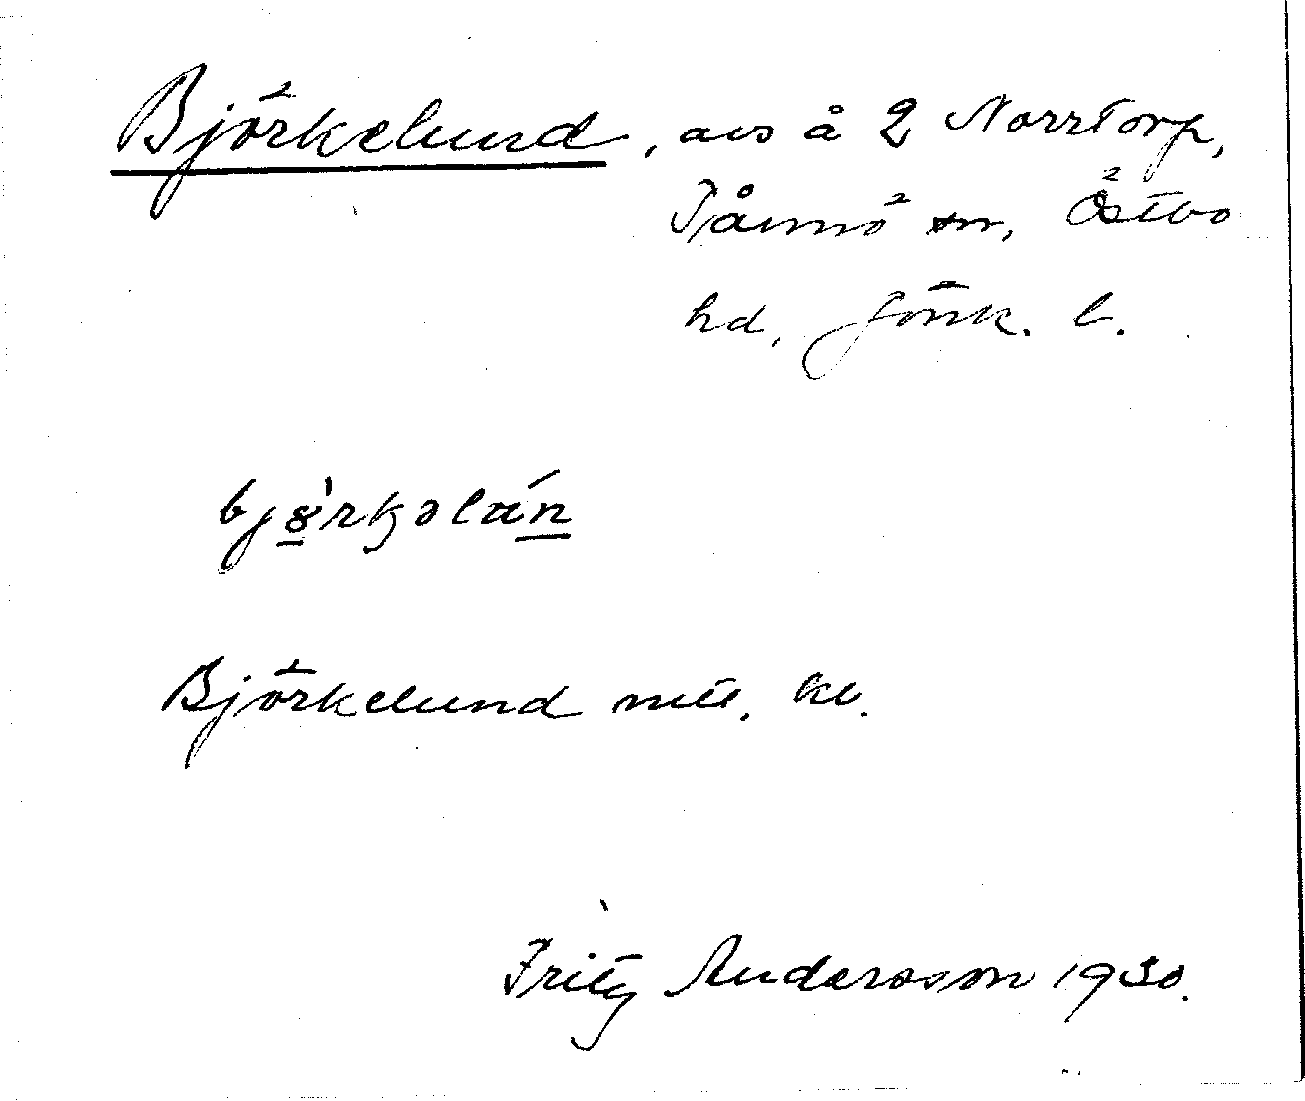 Björkelund, avs å 2 Norrtorp,
Tånnö sn, Östbo
hd, Jönk. l.
Björkelund mtl. kl.
Fritz Andersson 1930.